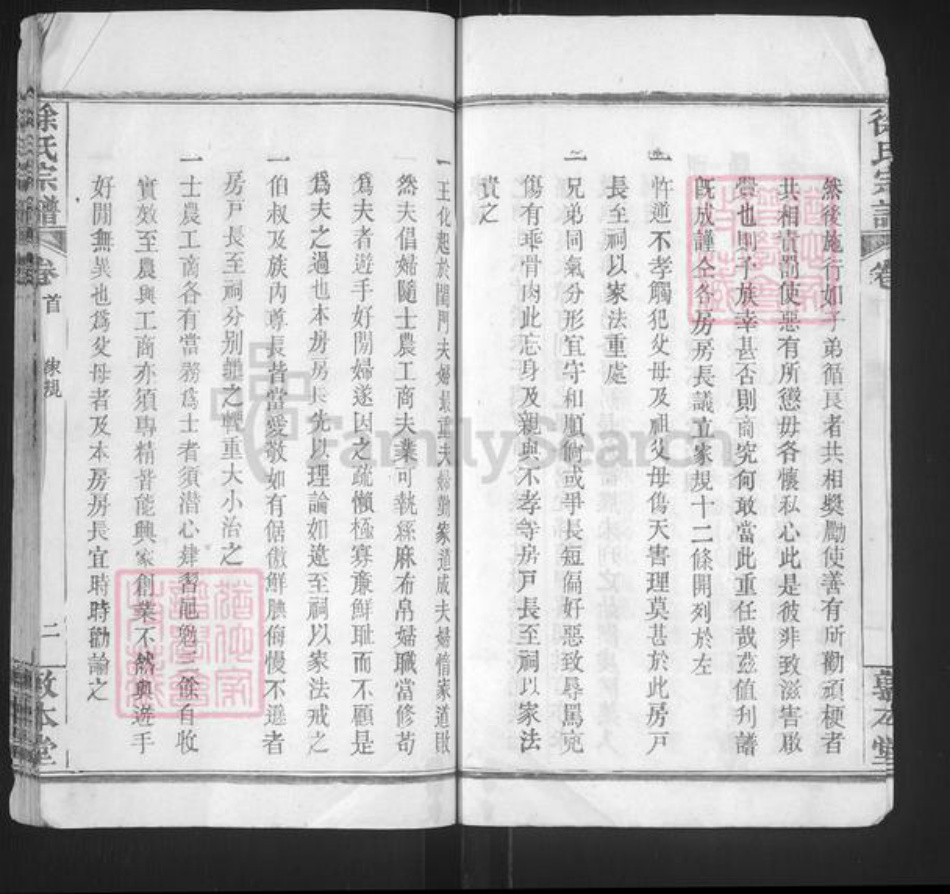 然後施行如子弟循良者共相奬勵使善有所勸頑梗者
共相責罰使惡有所懲毋各懷私心此是彼非致滋害厥
也則予族幸甚否則商究何敢當此重任哉茲值刋譜
旣成謹仝各房房長議立家規十二條開列於左
一忤逆不孝觸犯父母及祖父母傷天害理莫甚於此房戸
長至祠以家法重處
一兄弟同氣分形宜守和順倘或爭長短偏好惡致辱罵兇
傷有乖骨肉此忘身及親與不孝等房戸長至祠以家法
責之
一王化起於閨門夫婦最重夫婦勤家道成夫婦惰家道敗
然夫倡婦隨士農工商夫業可執絲麻布帛婦職當修苟
爲夫者遊手好閒婦遂因之疏懶極寡廉鮮耻而不顧是
爲夫之過也本房房長先以理論如違至祠以家法戒之
一伯叔及族內尊長皆當愛敬如有倨傲鮮腆侮慢不遜者
房戸長至祠分别親之輕重大小治之
一士農工商各有當務爲士者須潛心肄習黽勉三餘自收
實效至農與工商亦須專精皆能興家創業不然與遊手
好閒無異也爲父母者及本房房長宜時時勸諭之
徐氏宗譜
卷首
家規
二
敦本堂
徐氏宗譜
卷
敦本堂
FamilySearch